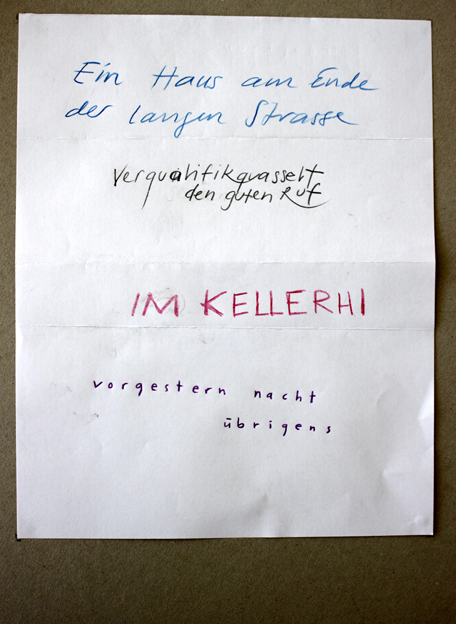 Ein Haus am Ende
der langen Strasse
verqualifikquasselt
den guten Ruf
IM KELLERHI
vorgestern nacht
übrigens